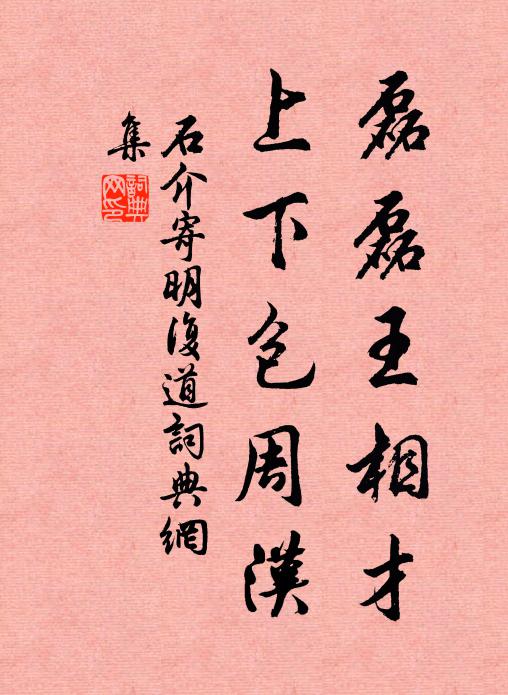 磊磊王相才
上下包周漢
石介寄明復道詞典網
集
詞典网印